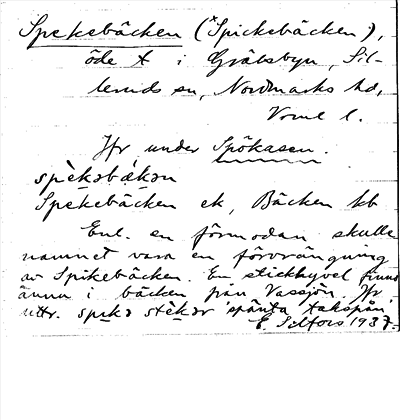 Spekebäcken (*Spickebäcken),
öde t i Gräbsbyn, Sil-
leruds sn, Nordmarks hd,
Vrml l.
Jfr under Spökasen.
spèkəbækən
Spekebäcken ek, Bäcken kb
Enl. en förmodan skulle
namnet vara en förvrängning
av Spikebäcken. En stickhyvel finns
ännu i bäcken från Vassjön. Jfr
uttr. spika stekor 'spänta takspån'
1937.